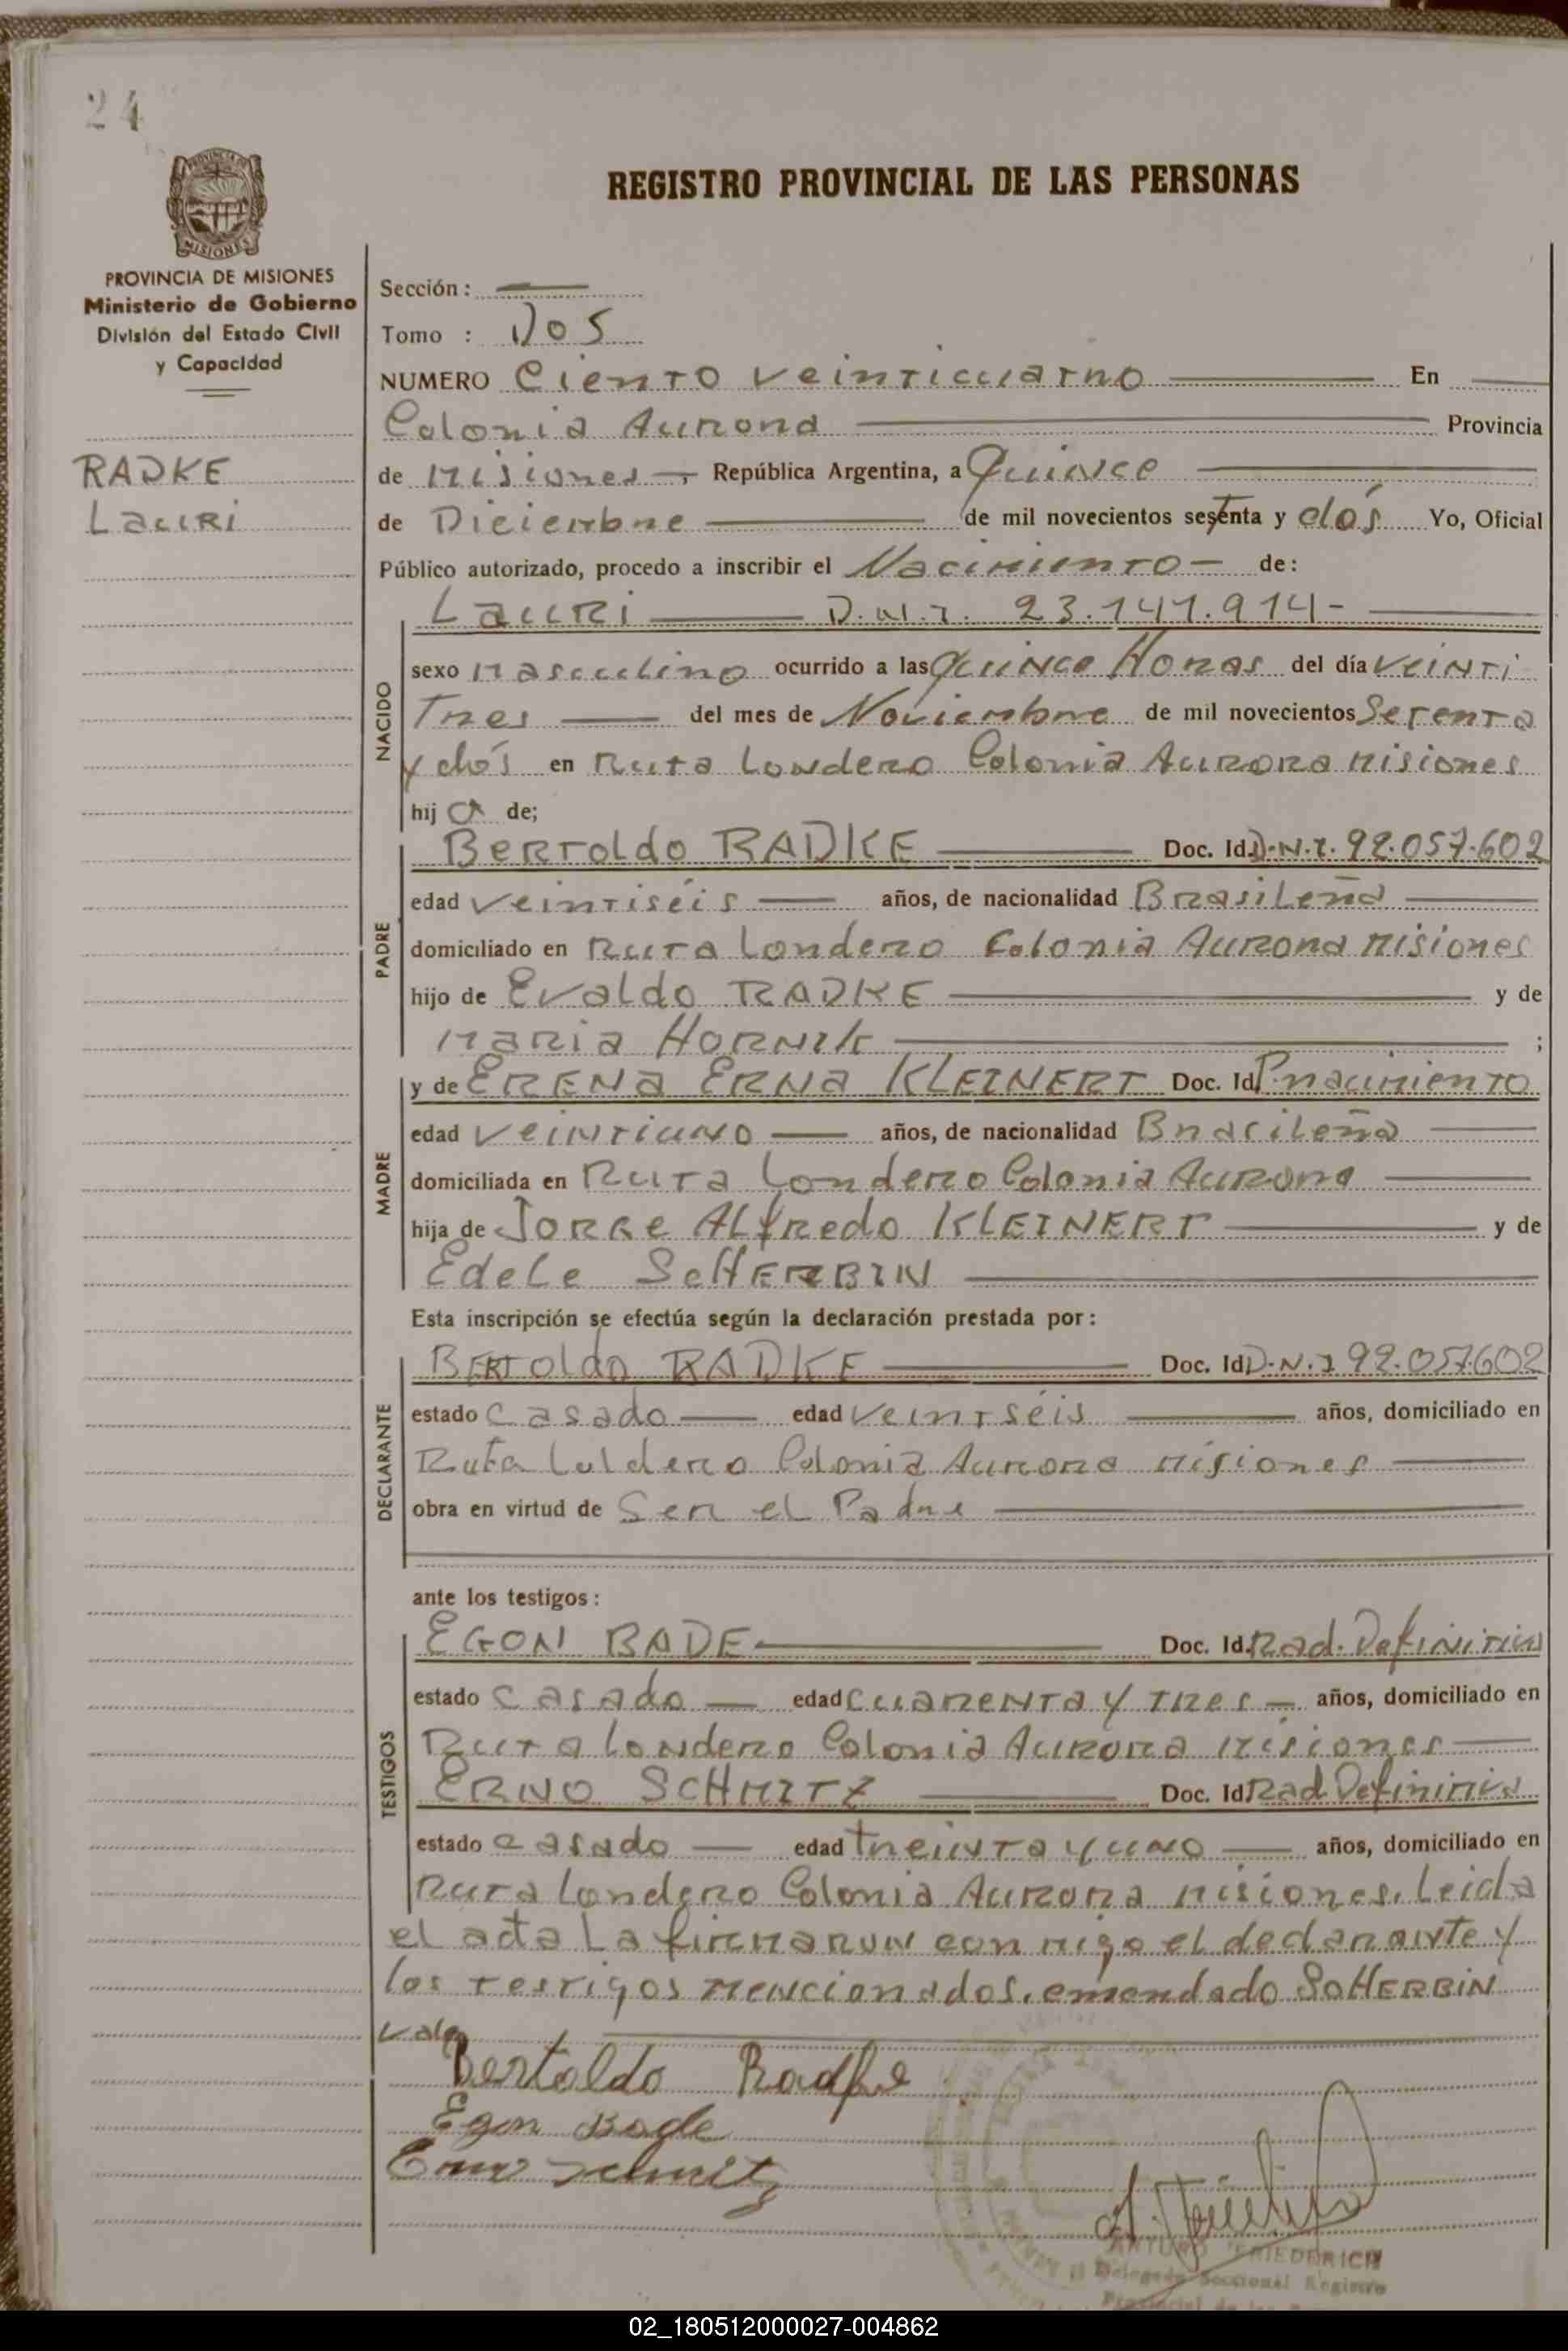 24
PROVINCIA DE MISIONES
REGISTRO PROVINCIAL DE LAS PERSONAS
PROVINCIA DE MISIONES
Ministerio de Gobierno
División del Estado Civil
y Capacidad
RADKE
Lauri
Sección:
Tomo : Dos
NUMERO Ciento veinticuatro En
Colonia Aurora Provincia
de Misiones República Argentina, a Quince
de Diciembre de mil novecientos setenta y dós Yo, Oficial
Público autorizado, procedo a inscribir el Nacimiento de:
Lauri D.N.I. 23.141.914-
sexo masculino ocurrido a las quince Horas del día veinti
Tres del mes de Noviembre de mil novecientos Setenta
y dós en Ruta Londero Colonia Aurora Misiones
NACIDO
hijo de;
Bertoldo RADKE Doc. Id. D.N.I. 92.057.602
edad veintiséis años, de nacionalidad Brasileña
domiciliado en Ruta Londero Colonia Aurora Misiones
PADRE
hijo de Evaldo RADKE y de
Maria HORNIK ;
y de ERENA ERNA KLEINERT Doc. Id. P. nacimiento
edad veintiuno años, de nacionalidad Brasileña
domiciliada en Ruta Londero Colonia Aurora
MADRE
hija de JORGE ALfredo KLEINERT y de
Edele ScHERBIN
Esta inscripción se efectúa según la declaración prestada por:
BERToldo RADKE Doc. Id. D.N.I 92.057.602
estado Casado edad veintséis años, domiciliado en
Ruta Loldero Colonia Aurora Misiones
DECLARANTE
obra en virtud de Ser el Padre
ante los testigos:
EGON BADE Doc. Id. Rad. Definitiva
estado Casado edad cuarenta y tres años, domiciliado en
Ruta Londero Colonia Aurora Misiones
TESTIGOS
ERNO SCHMITZ Doc. Id. Rad Definitiva
estado casado edad treinta y uno años, domiciliado en
Ruta Londero Colonia Aurora Misiones. Leida
el acta La firmaron con migo el declarante y
los testigos mencionados. emendado ScHERBIN
vale
Bertoldo Radke
Egon Bade
Erno Schmitz
ARTURO FRIEDERICH
Delegado Seccional Registro
02_180512000027-004862